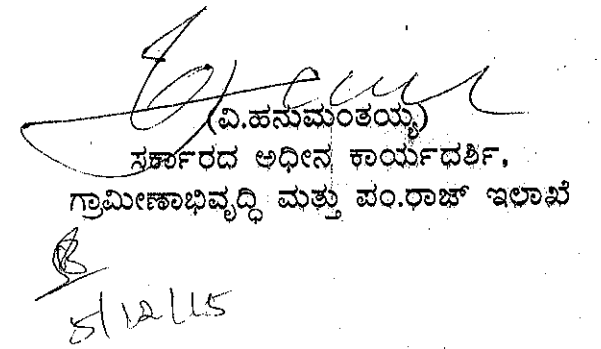 (ವಿ.ಹನುಮಂತಯ್ಯ)
ಸರ್ಕಾರದ ಅಧೀನ ಕಾರ್ಯದರ್ಶಿ,
ಗ್ರಾಮೀಣಾಭಿವೃದ್ಧಿ ಮತ್ತು ಪಂ.ರಾಜ್ ಇಲಾಖೆ
5/12/15